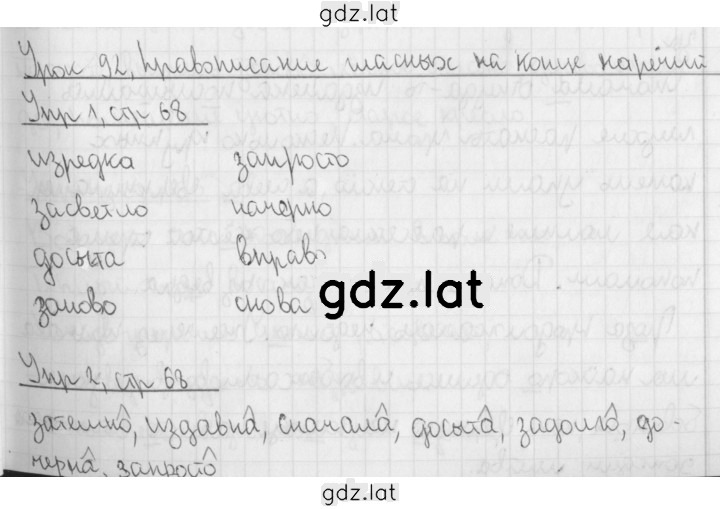 gdz.lat
Урок 92, Правописание гласных на конце наречий
Упр 1, стр 68
изредка запросто
засветло начерно
досыта вправо
заново снова
gdz.lat
Упр 2, стр 68
затемно, издавна, сначала, досыта, задолго, до-
черна, запросто
gdz.lat